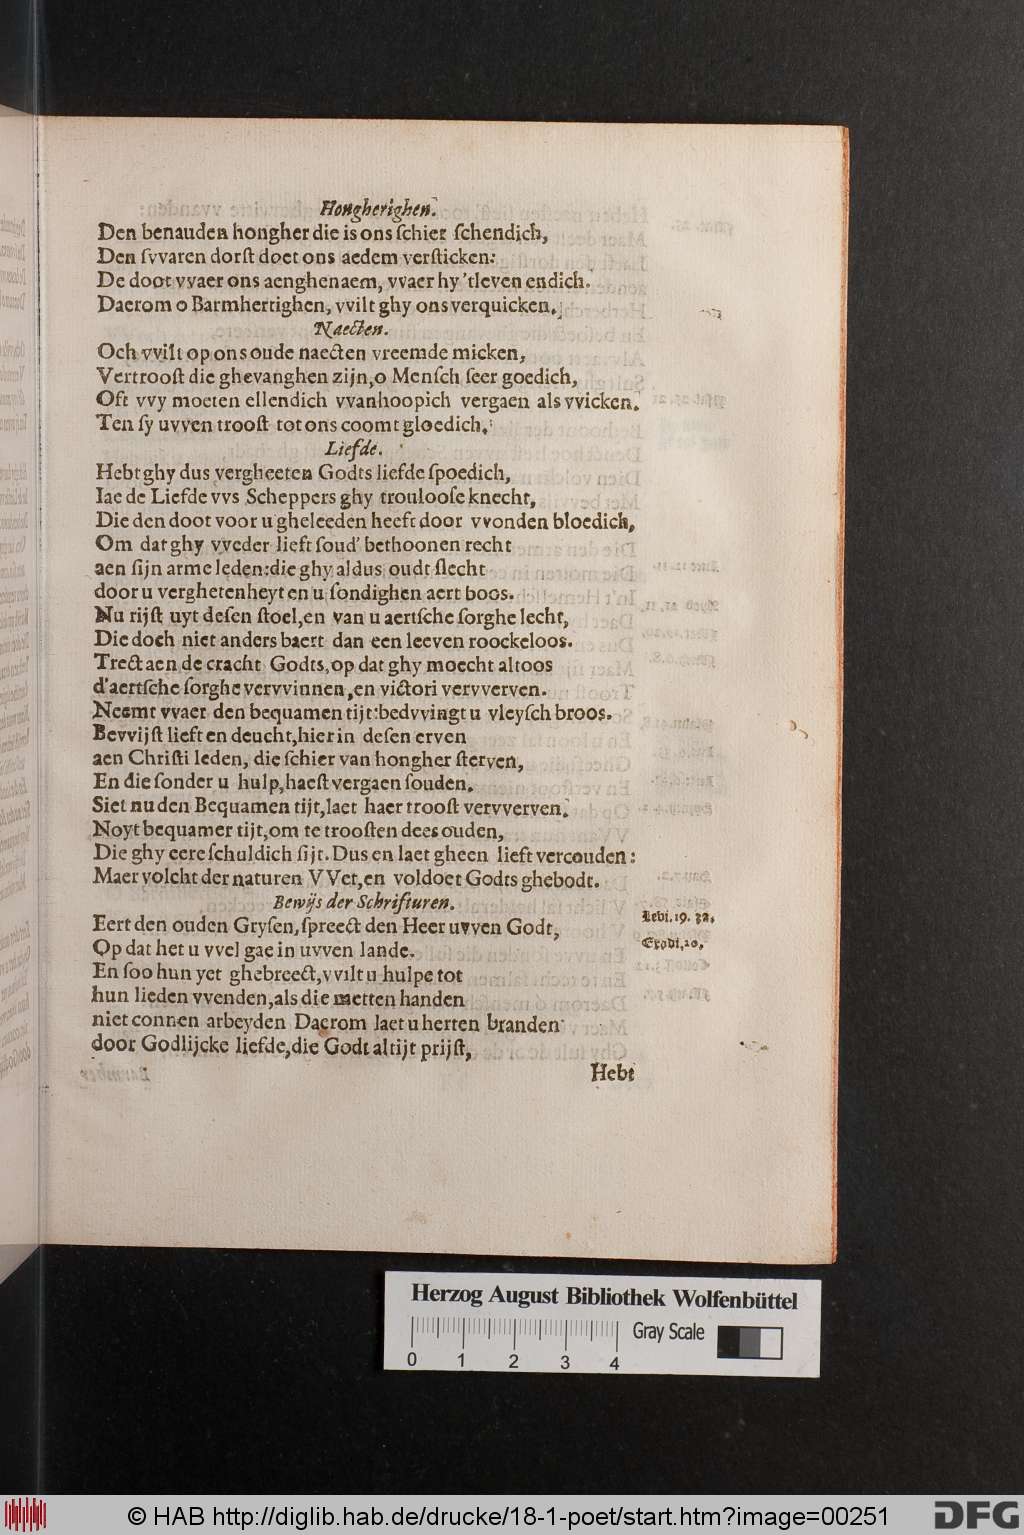 Hongherighen.
Den benauden hongher die is ons ſchier ſchendich,
Den ſvvaren dorſt doet ons aedem verſticken:
De doot vvaer ons aenghenaem, vvaer hy 'tleven endich.
Daerom o Barmhertighen, vvilt ghy ons verquicken.
Naecten.
Och vvilt op ons oude naecten vreemde micken,
Vertrooſt die ghevanghen zijn, o Menſch ſeer goedich,
Oft vvy moeten ellendich vvanhoopich vergaen als vvicken.
Ten ſy uvven trooſt tot ons coomt gloedich.
Liefde.
Hebt ghy dus vergheeten Godts liefde ſpoedich,
Iae de Liefde vvs Scheppers ghy troulooſe knecht,
Die den doot voor u gheleeden heeft door vvonden bloedich,
Om dat ghy vveder lieft ſoud' bethoonen recht
aen ſijn arme leden: die ghy aldus oudt ſlecht
door u verghetenheyt en u ſondighen aert boos.
Nu rijſt uyt deſen ſtoel, en van u aertſche ſorghe lecht,
Die doch niet anders baert dan een leeven roockeloos.
Trect aen de cracht Godts, op dat ghy moecht altoos
d'aertſche ſorghe vervvinnen, en victori vervverven.
Neemt vvaer den bequamen tijt: bedvvingt u vleyſch broos.
Bevvijſt lieft en deucht, hier in deſen erven
aen Chriſti leden, die ſchier van hongher ſterven,
En die ſonder u hulp, haeſt vergaen ſouden.
Siet nu den Bequamen tijt, laet haer trooſt vervverven.
Noyt bequamer tijt, om te trooſten dees ouden,
Die ghy eere ſchuldich ſijt. Dus en laet gheen lieft vercouden:
Maer volcht der naturen VVet, en voldoet Godts ghebodt.
Bewijs der Schrifturen.
Eert den ouden Gryſen, ſpreect den Heer uvven Godt, Levi. 19. 32.
Op dat het u vvel gae in uvven lande. Exodi, 20,
En ſoo hun yet ghebreect, vvilt u hulpe tot
hun lieden vvenden, als die metten handen
niet connen arbeyden Daerom laet u herten branden
door Godlijcke liefde, die Godt altijt prijſt,
Hebt
Herzog August Bibliothek Wolfenbüttel
Gray Scale
0 1 2 3 4
© HAB http://diglib.hab.de/drucke/18-1-poet/start.htm?image=00251
DFG